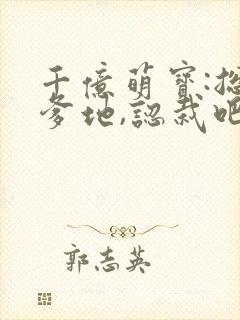 千億萌寶:總
爹地,認栽吧
郭志英